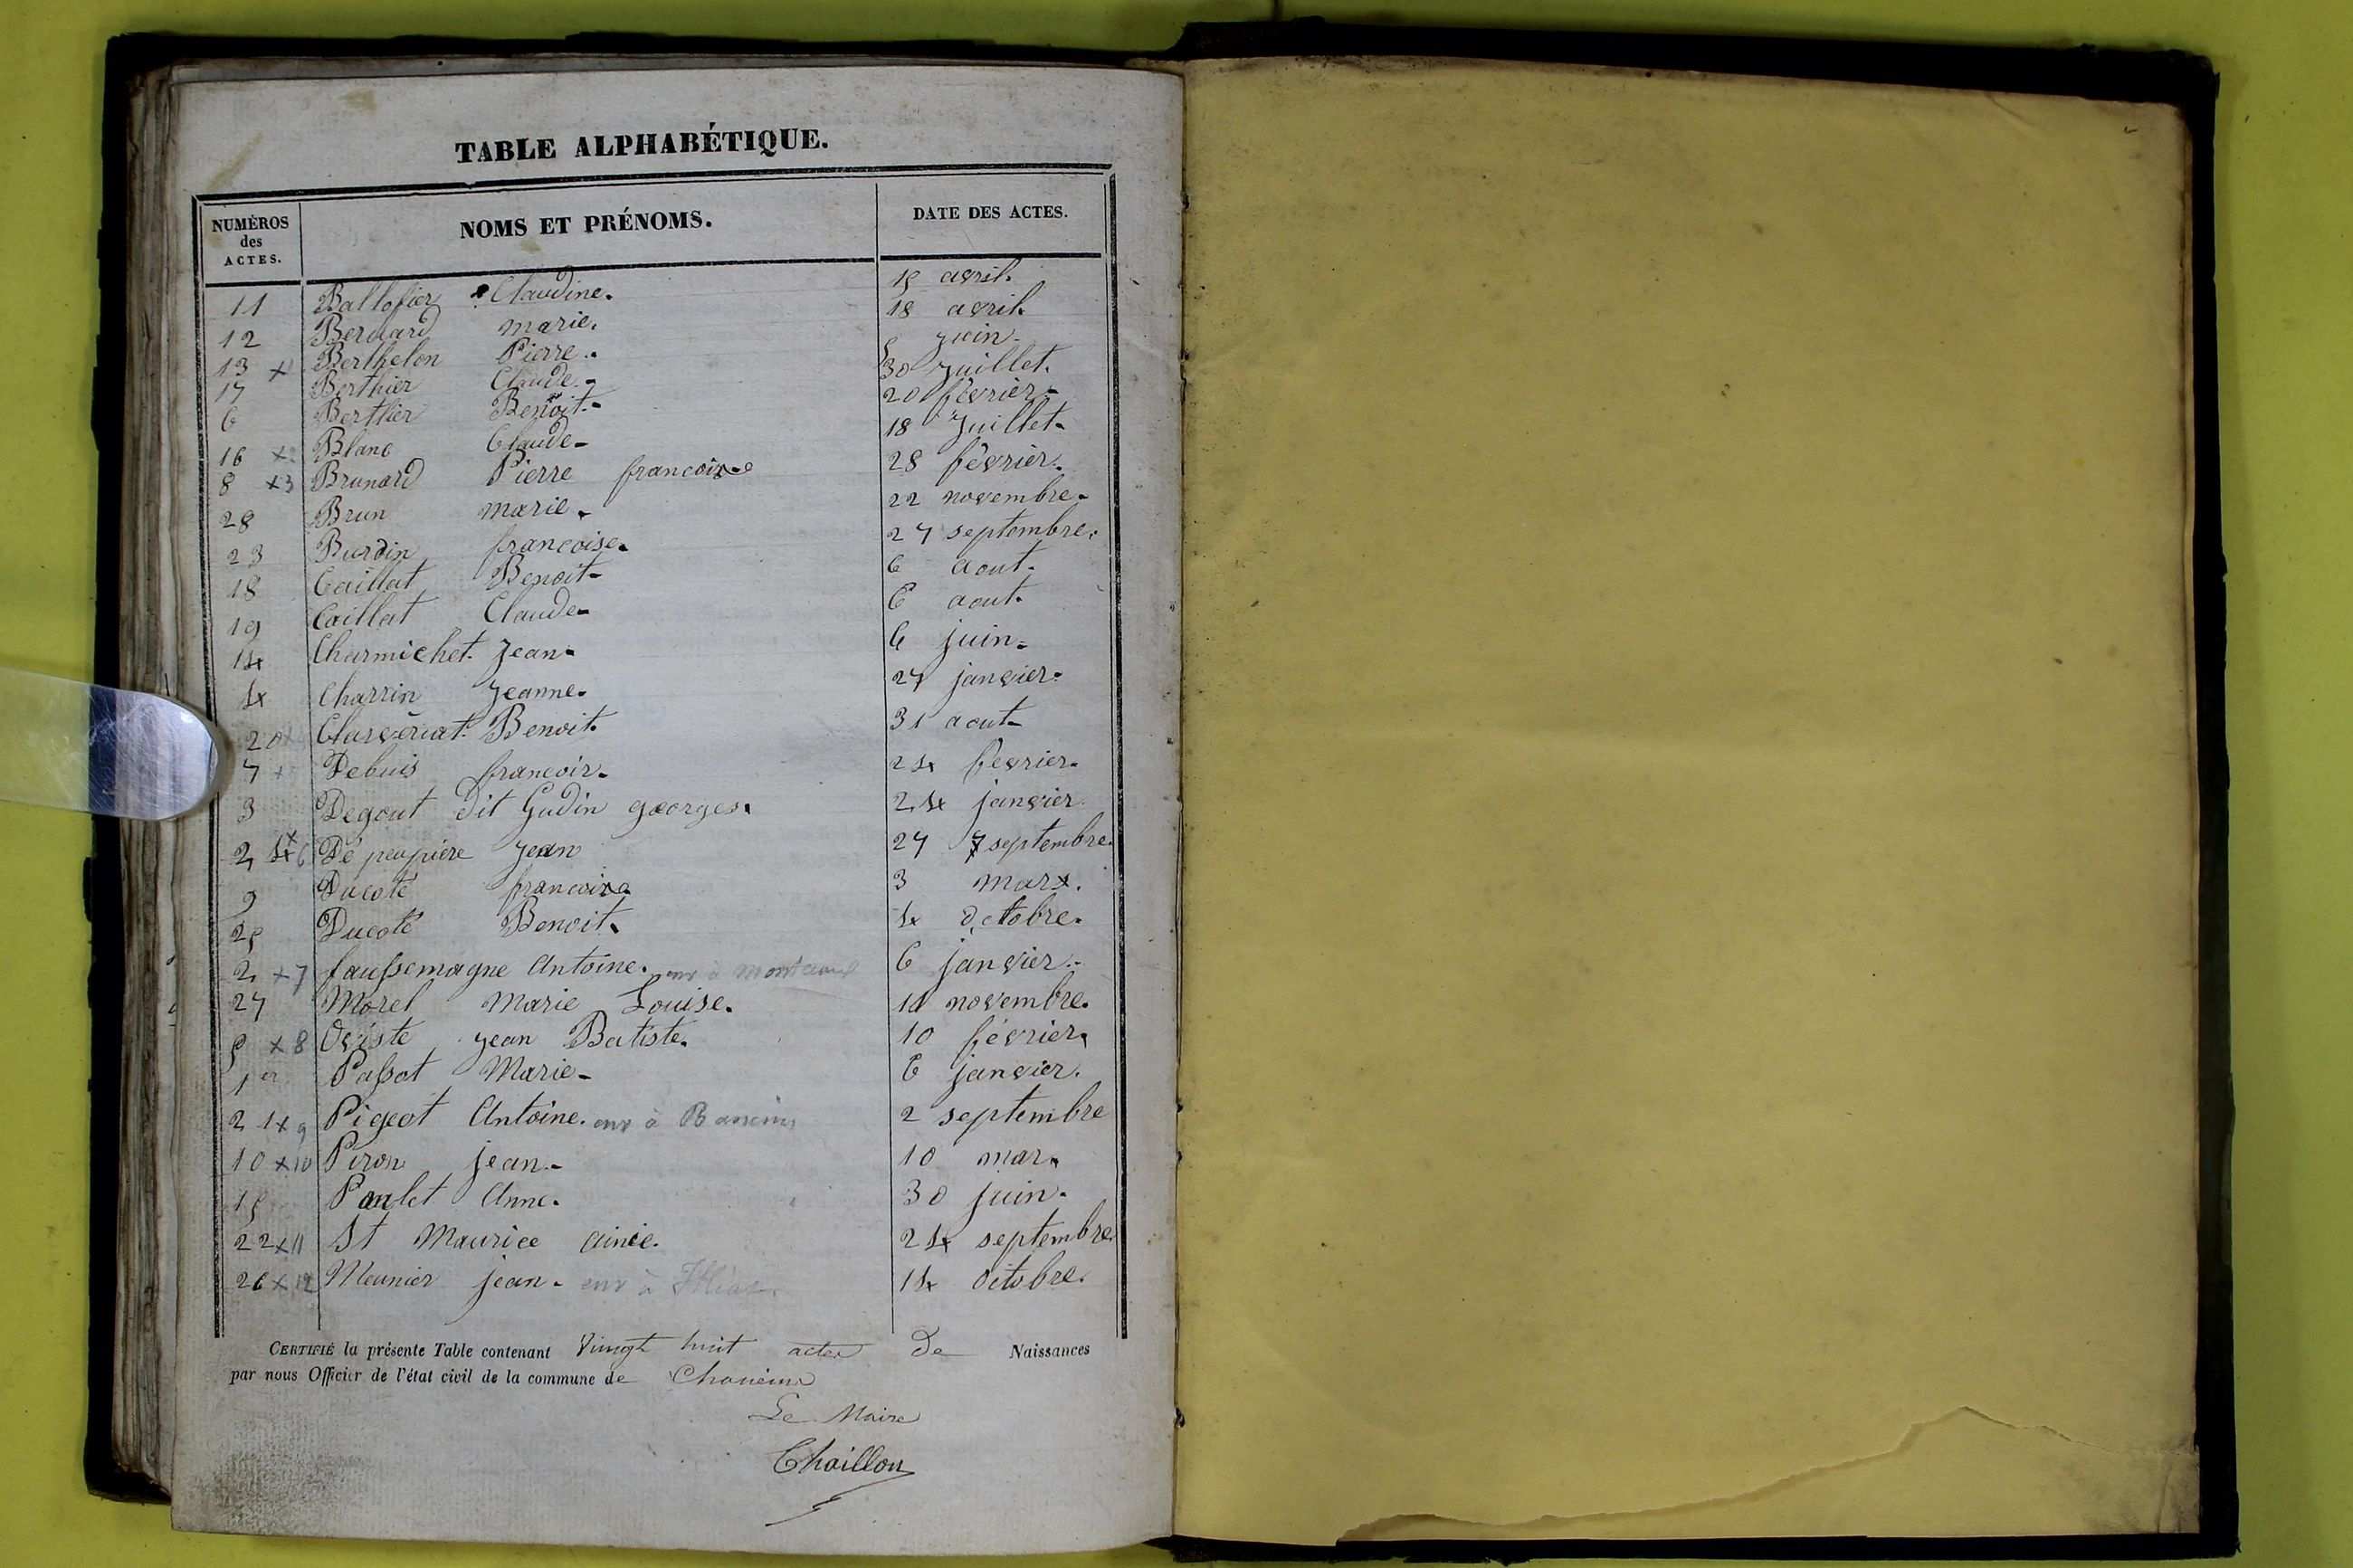 TABLE ALPHABÉTIQUE.
NUMÉROS des ACTES. NOMS ET PRÉNOMS. DATE DES ACTES.
11 Ballofier Claudine. 15 avril.
12 Bernard marie. 18 avril.
13 x1 Berthelon Pierre. 5 juin.
17 Berthier Claude. 30 juillet.
6 Berthier Benoit. 20 février.
16 x2 Blanc Claude. 18 juillet.
8 x3 Brunard Pierre francoise 28 février.
28 Brun marie. 22 novembre.
23 Burdin francoise. 27 septembre.
18 Caillat Benoit. 6 aout.
19 Caillat Claude. 6 aout.
14 Charmichet Jean. 6 juin.
4 Charrin Jeanne. 27 janvier.
20 Claveriat Benoit. 31 aout.
7 x Debuis francois. 24 février.
3 Degout dit Gudin georges. 24 janvier.
24 x6 De peupière Jean 27 septembre.
9 Ducoté francoise 3 mars.
25 Ducoté Benoit. 4 Octobre.
2 x7 faussemagne Antoine. 6 janvier.
27 Morel Marie Louise. 11 novembre.
5 x8 Oviste jean Batiste. 10 février.
1er Passot Marie. 6 janvier.
21 x9 Pigeot Antoine. env à 2 septembre
10 x10 Piron jean. 10 mar.
15 Paulet Anne. 30 juin.
22 x11 St Maurice ainée. 24 septembre.
26 x12 Meunier jean. env à 14 Octobre.
CERTIFIÉ la présente Table contenant Vingt huit actes de Naissances
par nous Officier de l'état civil de la commune de
Le Maire
Chaillon